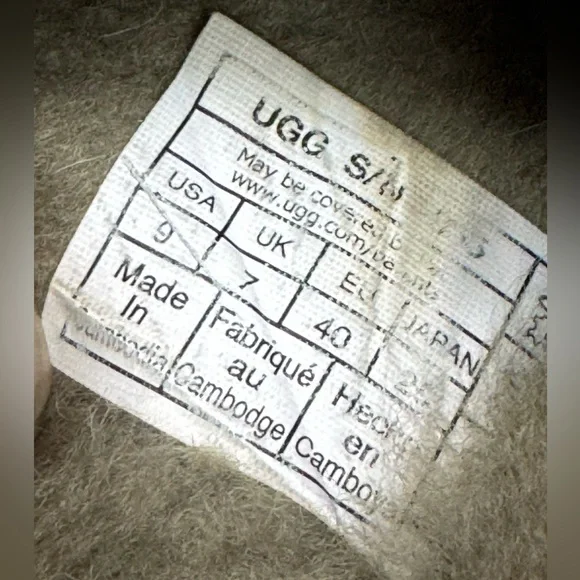 UGG S/N
May be covered b
www.ugg.com/pa
USA UK EU JAPAN
9 7 40
Made In Cambodia
Fabriqué au Cambodge
en